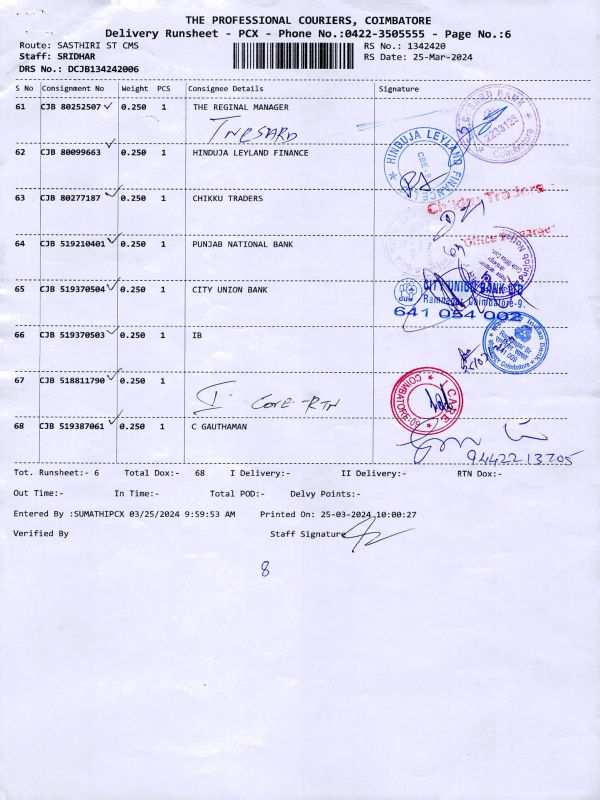 THE PROFESSIONAL COURIERS, COIMBATORE
Delivery Runsheet - PCX - Phone No.:0422-3505555 - Page No.:6
Route: SASTHIRI ST CMS
RS No.: 1342420
Staff: SRIDHAR
RS Date: 25-Mar-2024
DRS No.: DCJB134242006
S No Consignment No Weight PCS Consignee Details Signature
61 CJB 80252507 0.250 1 THE REGINAL MANAGER
62 CJB 80099663 0.250 1 HINDUJA LEYLAND FINANCE
HINDUJA LEYLAND FINANCE
63 CJB 80277187 0.250 1 CHIKKU TRADERS
Chikku Traders
64 CJB 519210401 0.250 1 PUNJAB NATIONAL BANK
65 CJB 519370504 0.250 1 CITY UNION BANK
CUB
CITY UNION BANK LTD
Ramnagar, Coimbatore-9.
641 054 002
66 CJB 519370503 0.250 1 IB
Indian Bank
67 CJB 518811790 0.250 1
I. CORE-RTN
I CARE
COIMBATORE
68 CJB 519387061 0.250 1 C GAUTHAMAN
9442213705
Tot. Runsheet:- 6 Total Dox:- 68 I Delivery:- II Delivery:- RTN Dox:-
Out Time:- In Time:- Total POD:- Delvy Points:-
Entered By :SUMATHIPCX 03/25/2024 9:59:53 AM Printed On: 25-03-2024 10:00:27
Verified By Staff Signature
8